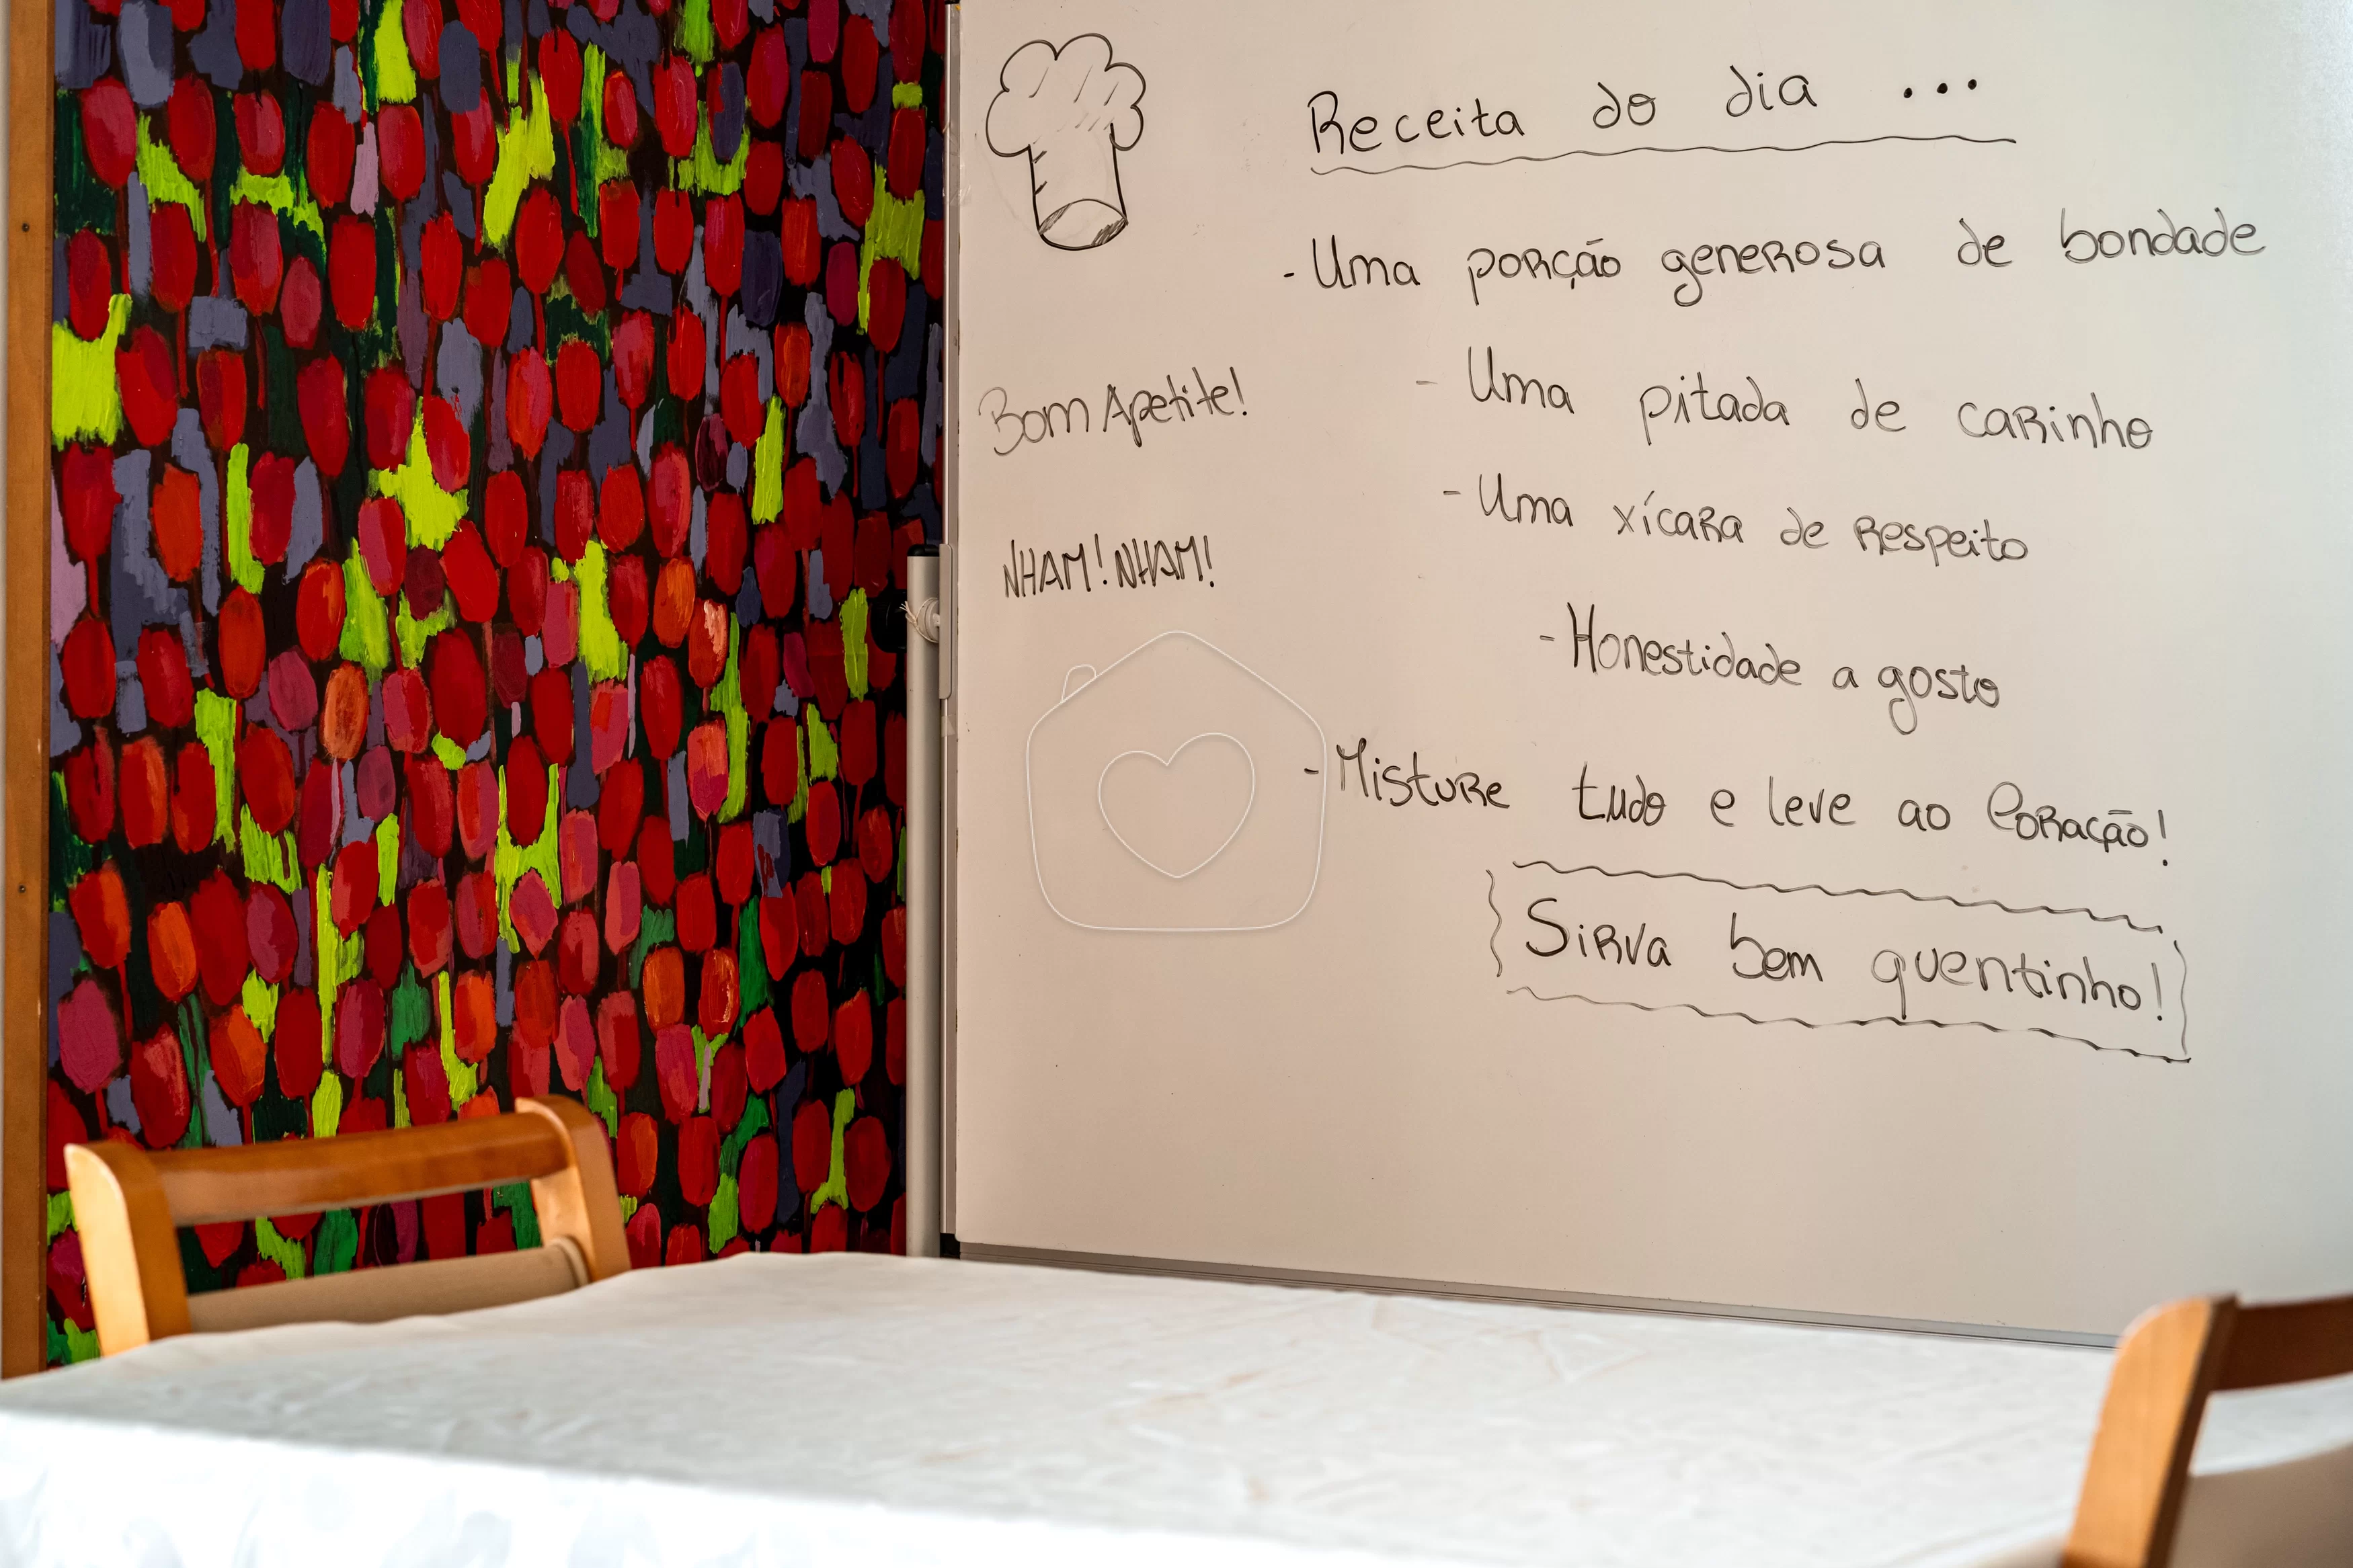 Receita do dia ...
- Uma porção generosa de bondade
- Uma pitada de carinho
- Uma xícara de respeito
- Honestidade a gosto
- Misture tudo e leve ao Coração!
Sirva bem quentinho!
Bom Apetite!
NHAM! NHAM!